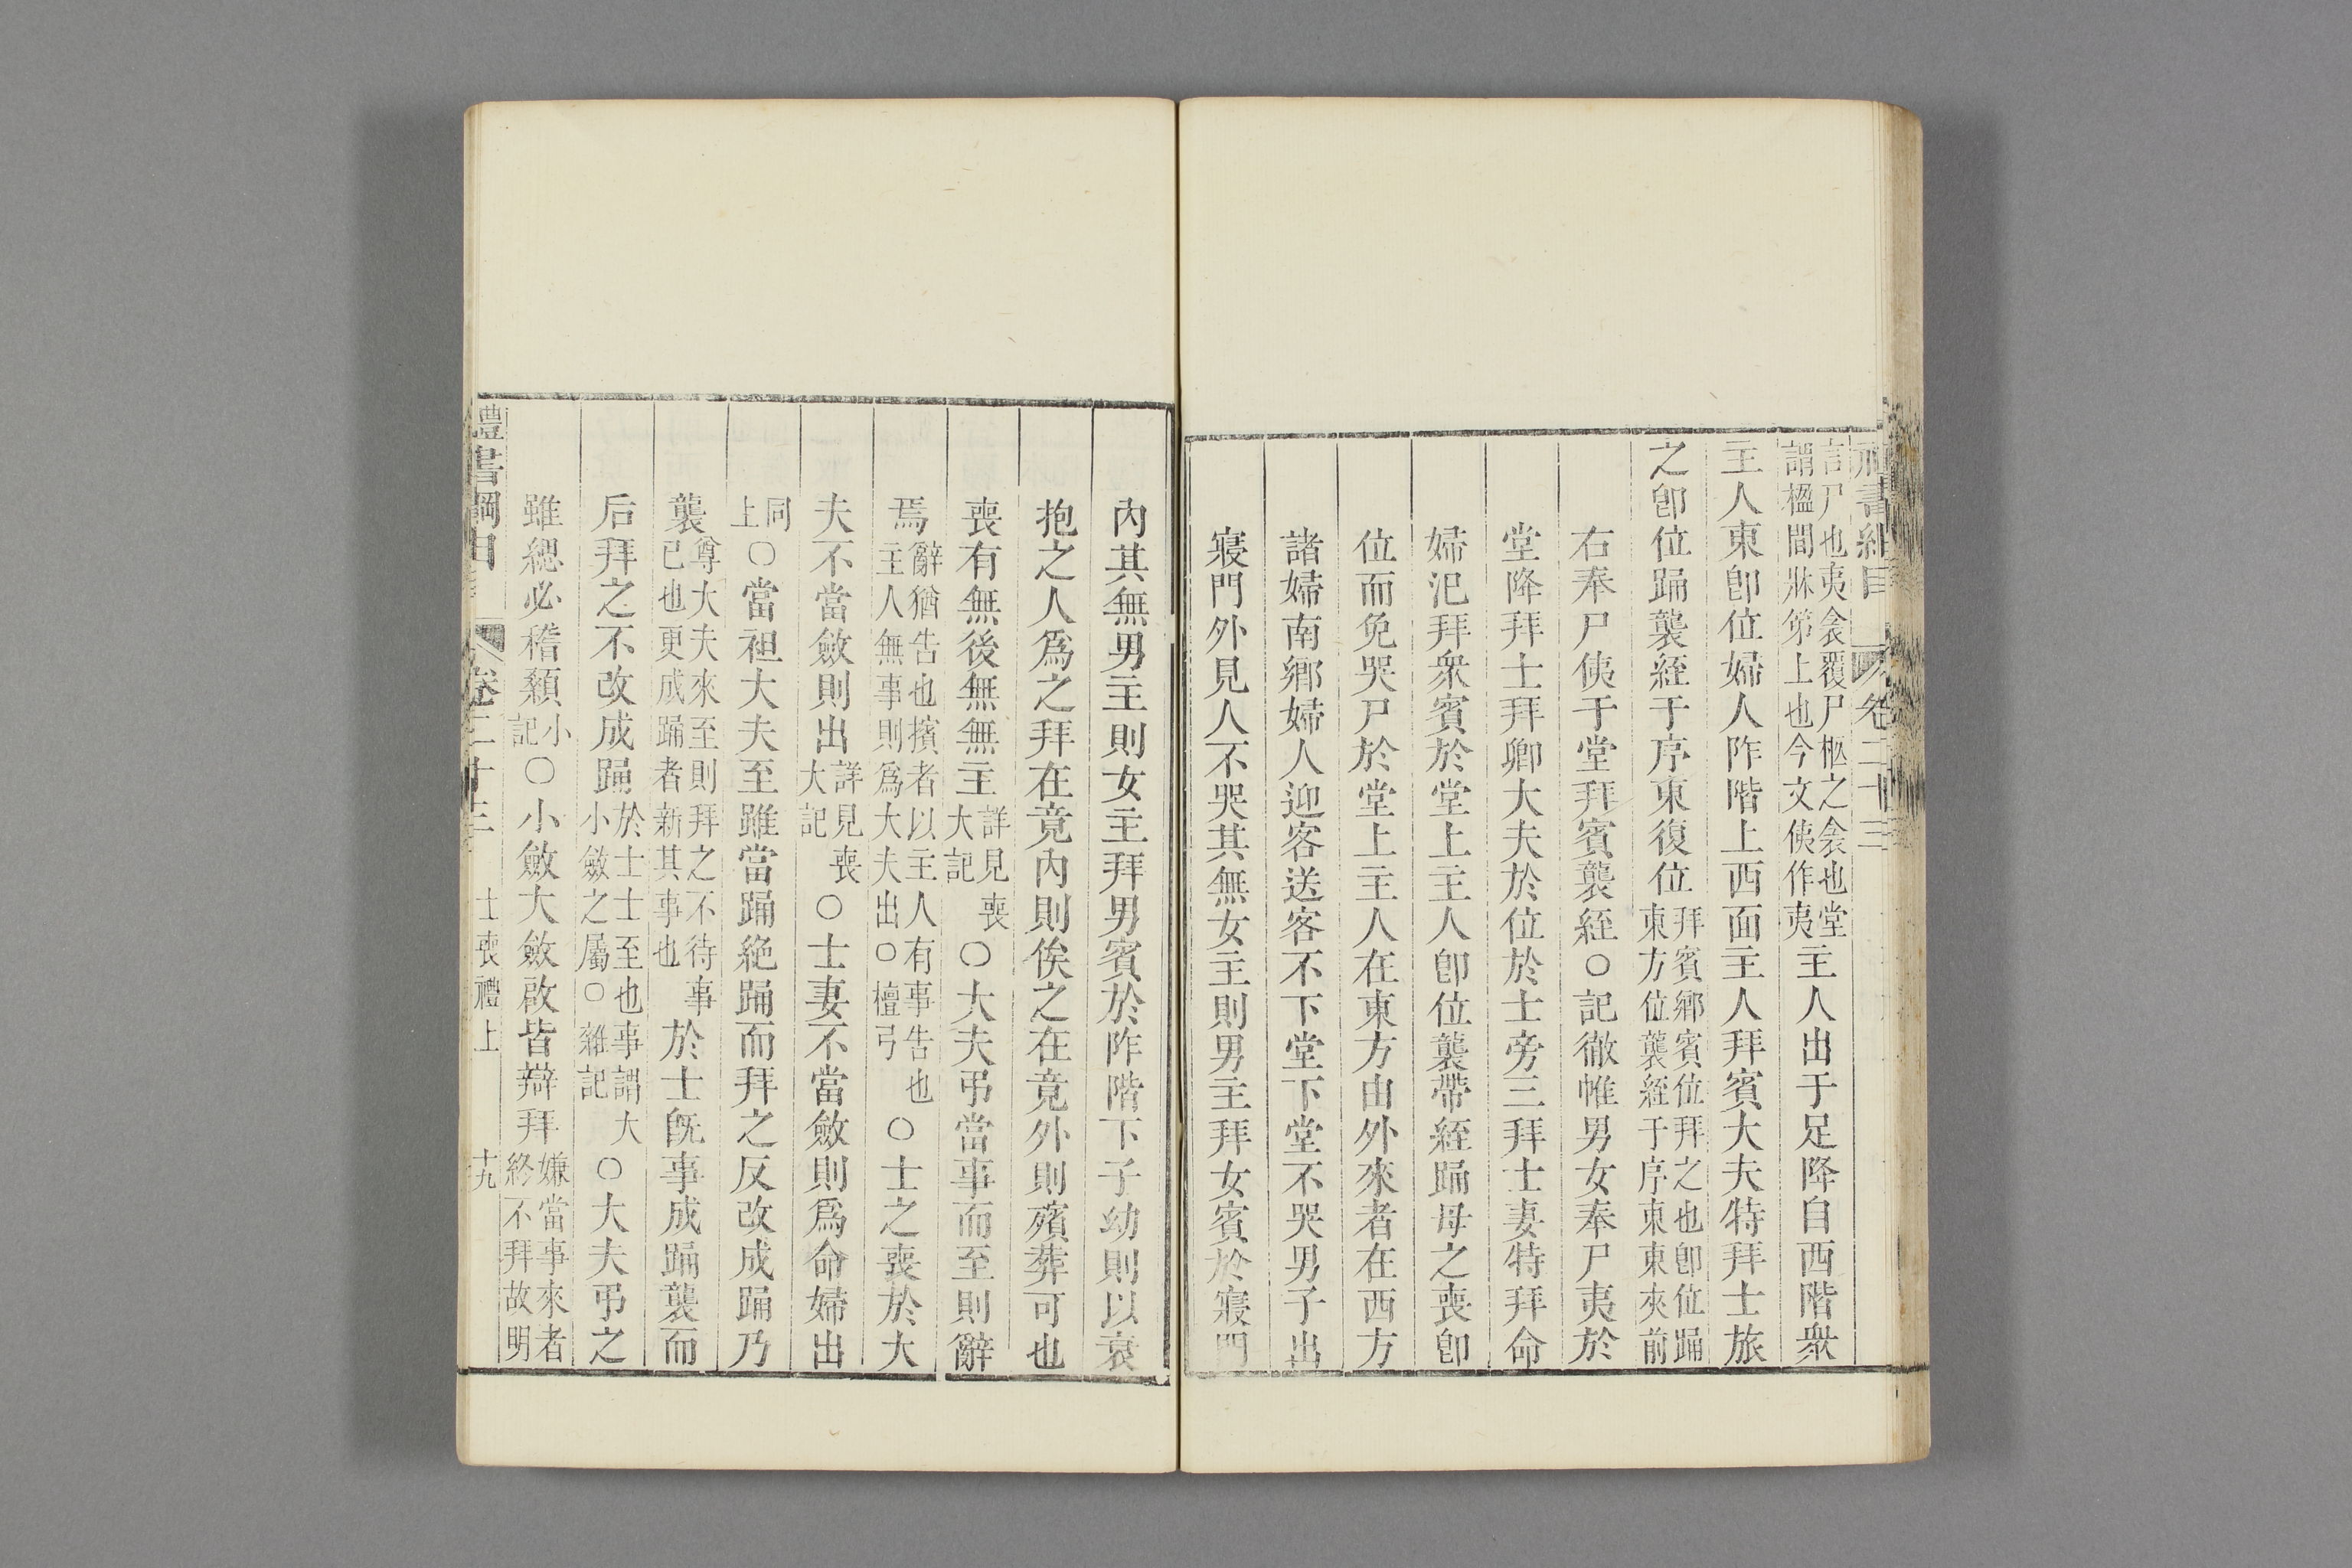 禮書綱目 卷二十三
言尸也夷衾覆尸柩之衾也堂
謂楹間牀笫上也今文侇作夷
主人出于足降自西階衆
主人東卽位婦人阼階上西面主人拜賓大夫特拜士旅
之卽位踊襲絰于序東復位
拜賓鄉賓位拜之也卽位踊
東方位襲絰于序東東夾前
右奉尸侇于堂拜賓襲絰○記徹帷男女奉尸夷於
堂降拜士拜卿大夫於位於士旁三拜士妻特拜命
婦汜拜衆賓於堂上主人卽位襲帶絰踊母之喪卽
位而免哭尸於堂上主人在東方由外來者在西方
諸婦南鄉婦人迎客送客不下堂下堂不哭男子出
寢門外見人不哭其無女主則男主拜女賓於寢門
內其無男主則女主拜男賓於阼階下子幼則以衰
抱之人爲之拜在竟內則俟之在竟外則殯葬可也
喪有無後無無主
詳見喪
大記
○大夫弔當事而至則辭
焉
辭猶告也擯者以主人有事告也
主人無事則爲大夫出○檀弓
○士之喪於大
夫不當斂則出
詳見喪
大記
○士妻不當斂則爲命婦出
同
上
○當袒大夫至雖當踊絶踊而拜之反改成踊乃
襲
尊大夫來至則拜之不待事
已也更成踊者新其事也
於士旣事成踊襲而
后拜之不改成踊
於士士至也事謂大
小斂之屬○雜記
○大夫弔之
雖緦必稽顙
小
記
○小斂大斂啟皆辯拜
嫌當事來者
終不拜故明
禮書綱目 卷二十三 士喪禮上 十九